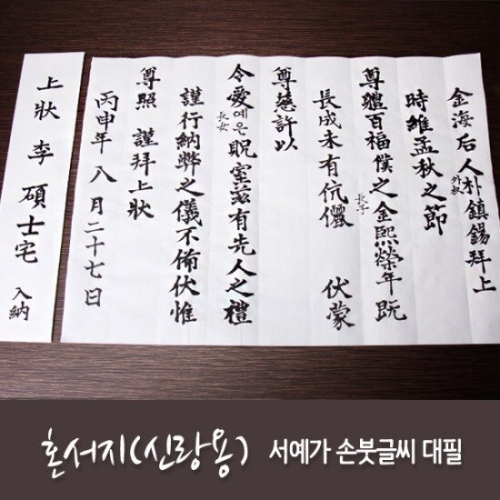 金海后人外叔朴鎭錫拜上
時維孟秋之節
尊體百福僕之長子金熙榮年旣
長成未有伉儷 伏蒙
尊慈許以
令愛長女예은貺室玆有先人之禮
謹行納幣之儀不備伏惟
尊照 謹拜上狀
丙申年八月二十七日
上狀 李碩士宅 入納
혼서지(신랑용) 서예가 손붓글씨 대필